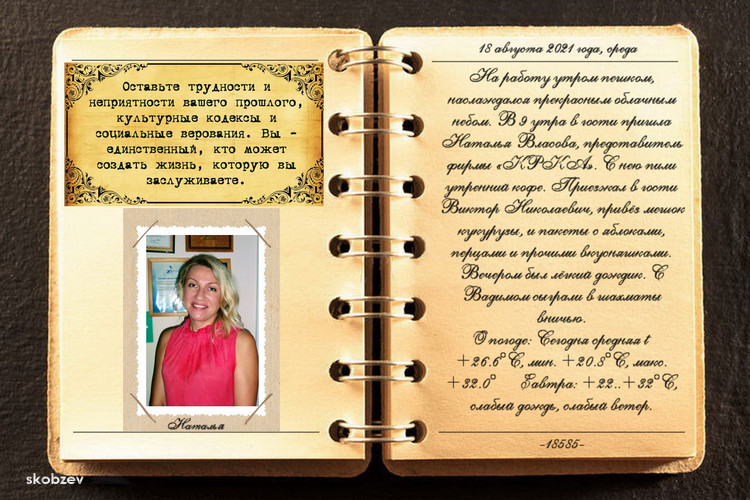 Оставьте трудности и
неприятности вашего прошлого,
культурные кодексы и
социальные верования. Вы -
единственный, кто может
создать жизнь, которую вы
заслуживаете.
Наталья
18 августа 2021 года, среда
На работу утром пешком,
наслаждался прекрасным облачным
небом. В 9 утра в гости пришла
Наталья Власова, представитель
фирмы «КРКА». С нею пили
утренний кофе. Приезжал в гости
Виктор Николаевич, привёз мешок
кукурузы, и пакеты с яблоками,
перцами и прочими вкусняшками.
Вечером был лёгкий дождик. С
Вадимом сыграли в шахматы
вничью.
О погоде: Сегодня средняя t
+26.6°C, мин. +20.8°C, макс.
+32.0° Завтра: +22..+32°C,
слабый дождь, слабый ветер.
-18585-
skobzev